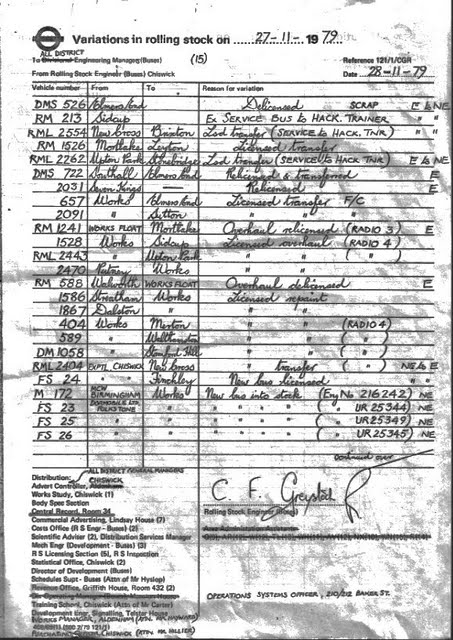 Variations in rolling stock on 27-11-1979
ALL DISTRICT
To Divisional Engineering Manager (Buses) (15) Reference 121/1/CGR
From Rolling Stock Engineer (Buses) Chiswick Date 28-11-79
Vehicle number From To Reason for variation
DMS 526 Elmers End Delicensed SCRAP E & NE
RM 213 Sidcup Ex SERVICE BUS to HACK. TRAINER " "
RML 2554 New Cross Brixton Lsd transfer (SERVICE to HACK. TNR) " "
RM 1526 Mortlake Leyton Licensed transfer
RML 2262 Upton Park Stockwell Lsd transfer (SERVICE to HACK TNR) E & NE
DMS 722 Southall Elmers End Relicensed & transferred E
2031 Seven Kings — Relicensed E
657 Works Elmers End Licensed transfer F/C
2091 " Sutton " "
RM 1241 WORKS FLOAT Mortlake Overhaul relicensed (RADIO 3) E
1528 Works Sidcup Licensed overhaul (RADIO 4)
RML 2443 " Upton Park " " ( " )
2470 Putney Works " "
RM 588 Walworth WORKS FLOAT Overhaul delicensed E
1586 Streatham Works Licensed repaint
1867 Dalston " " "
404 Works Merton " " (RADIO 4)
589 " Walthamstow " " ( " )
DM 1058 " Stamford Hill " " ( " )
RML 2404 EXPTL CHISWICK New Cross " transfer ( " ) NE & E
FS 24 " Finchley New bus licensed "
M 172 MCW BIRMINGHAM Works New bus into stock (Eng No 216242) NE
FS 23 DORMOBILE LTD FOLKSTONE " " " " " ( " UR 25344) NE
FS 25 " " " " " " ( " UR 25349) NE
FS 26 " " " " " " ( " UR 25345) NE
Continued over
Distribution: ALL DISTRICT GENERAL MANAGERS
CHISWICK
Advert Controller,
Works Study, Chiswick (1)
Body Spec Section
Central Record, Room 34
Commercial Advertising, Lindsay House (7)
Costs Office (R S Engr - Buses) (2)
Scientific Adviser (2), Distribution Services Manager
Mech Engr (Development - Buses) (3)
R S Licensing Section (5), R S Inspection
Statistical Office, Chiswick (2)
Director of Development (Buses)
Schedules Supt - Buses (Attn of Mr Hyslop)
Reference Office, Griffith House, Room 432 (2)
Training School, Chiswick (Attn of Mr Carter)
Development Engr, Signalling, Telstar House
WORKS MANAGER, ALDENHAM (ATTN. MR HAYWARD)
PURCHASING CHISWICK (ATTN. MR HILLIER)
C. F. Greystock
Rolling Stock Engineer (Buses)
OPERATIONS SYSTEMS OFFICER, 210/212 BAKER ST.